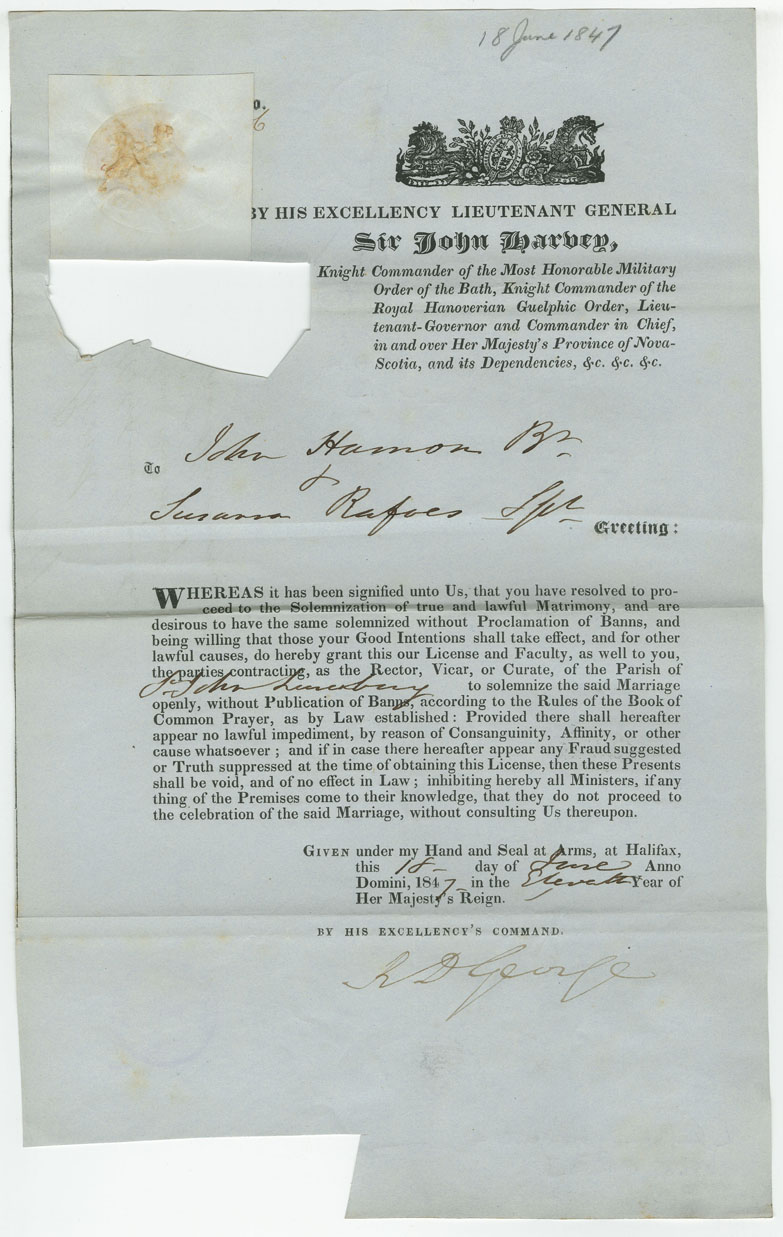 18 June 1847
o.
6
BY HIS EXCELLENCY LIEUTENANT GENERAL
Sir John Harvey,
Knight Commander of the Most Honorable Military
Order of the Bath, Knight Commander of the
Royal Hanoverian Guelphic Order, Lieu-
tenant-Governor and Commander in Chief,
in and over Her Majesty's Province of Nova-
Scotia, and its Dependencies, &c. &c. &c.
To John Hamon Br
&
Susanna Rafoes Spt
Greeting:
WHEREAS it has been signified unto Us, that you have resolved to pro-
ceed to the Solemnization of true and lawful Matrimony, and are
desirous to have the same solemnized without Proclamation of Banns, and
being willing that those your Good Intentions shall take effect, and for other
lawful causes, do hereby grant this our License and Faculty, as well to you,
the parties contracting, as the Rector, Vicar, or Curate, of the Parish of
St John Lunenburg to solemnize the said Marriage
openly, without Publication of Banns, according to the Rules of the Book of
Common Prayer, as by Law established: Provided there shall hereafter
appear no lawful impediment, by reason of Consanguinity, Affinity, or other
cause whatsoever; and if in case there hereafter appear any Fraud suggested
or Truth suppressed at the time of obtaining this License, then these Presents
shall be void, and of no effect in Law; inhibiting hereby all Ministers, if any
thing of the Premises come to their knowledge, that they do not proceed to
the celebration of the said Marriage, without consulting Us thereupon.
GIVEN under my Hand and Seal at Arms, at Halifax,
this 18 day of June Anno
Domini, 1847 in the Eleventh Year of
Her Majesty's Reign.
BY HIS EXCELLENCY'S COMMAND.
R D George